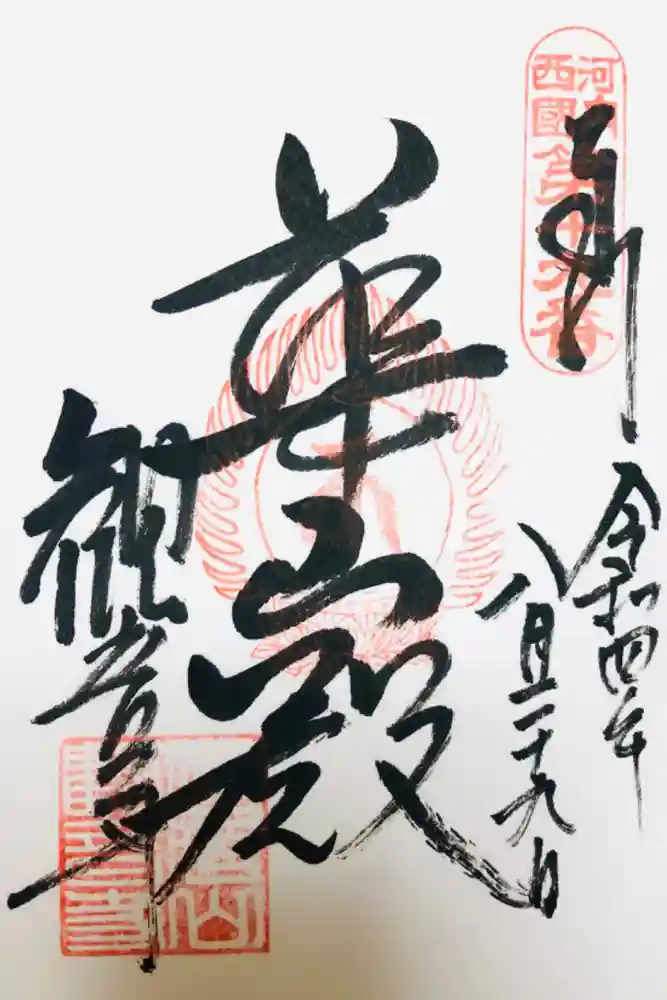 河内
西國
奉拝
令和四年
八月二十九日
華山殿
観音寺